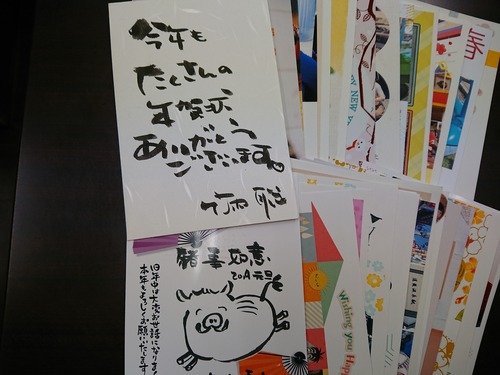 今年も
たくさんの
年賀状、
ありがとう
ございます。
諸事如意
2019元旦
旧年中は大変お世話になりました
本年もよろしくお願いいたします
春
NEW
Wishing you Happ